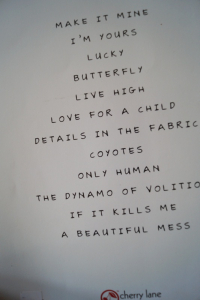 MAKE IT MINE
I'M YOURS
LUCKY
BUTTERFLY
LIVE HIGH
LOVE FOR A CHILD
DETAILS IN THE FABRIC
COYOTES
ONLY HUMAN
THE DYNAMO OF VOLITIO
IF IT KILLS ME
A BEAUTIFUL MESS
cherry lane